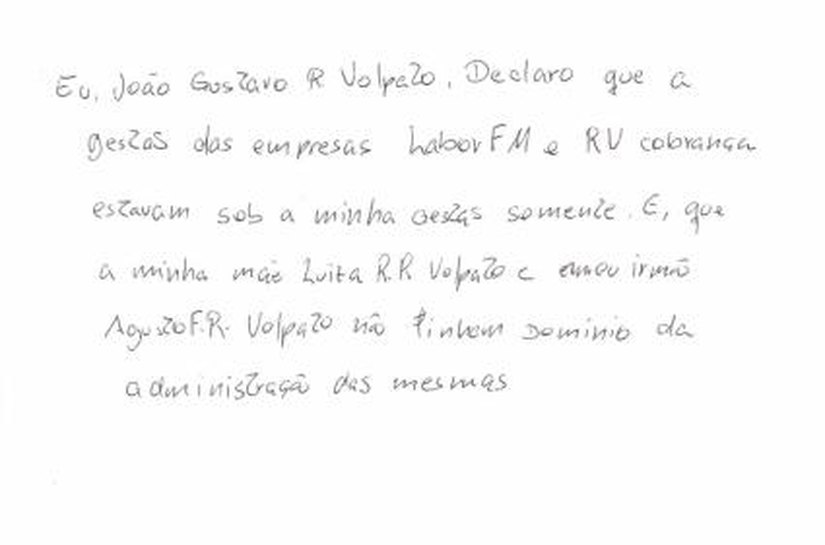 Eu, João Gustavo R Volpato, Declaro que a
gestas das empresas Labor FM e RV cobrança
estavam sob a minha gestas somente. E, que
a minha mãe Luita R.R Volpato e meu irmão
Agusto F.R. Volpato não tinham Dominio da
administração das mesmas